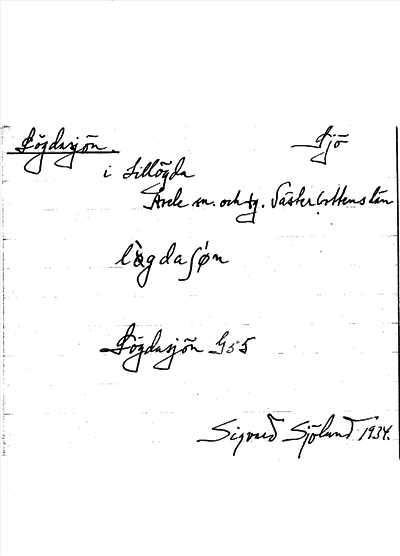 Lögdasjön. Sjö
i Lillögda
Åsele sn. och tg. Västerbottens län
lògdaʃǿn
Lögdasjön G55
Sigvard Sjölund 1934.